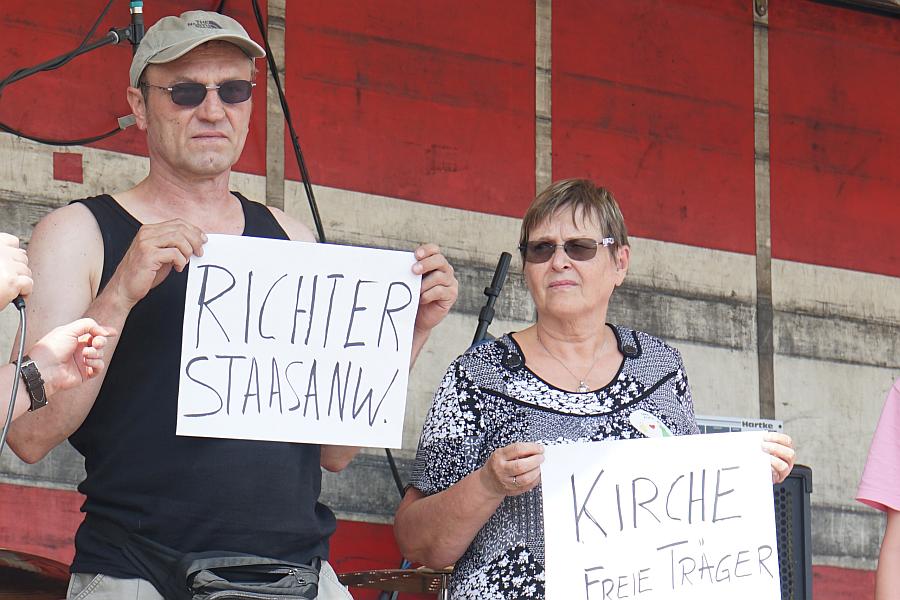 THE NORTH FACE
RICHTER
STAASANW.
Hartke
KIRCHE
FREIE TRÄGER